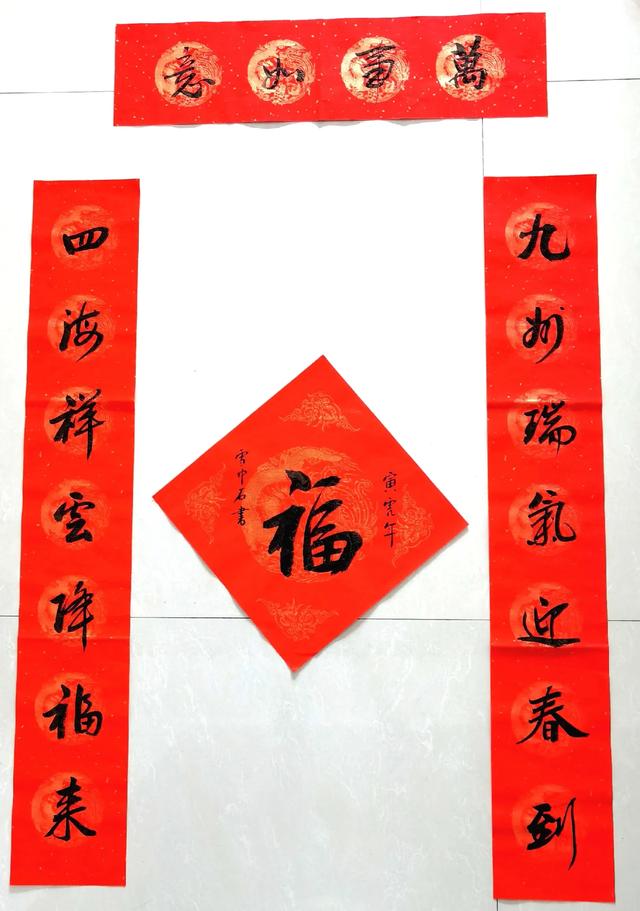 萬事如意
九州瑞氣迎春到
四海祥雲降福来
寅虎年
福
雲中石書